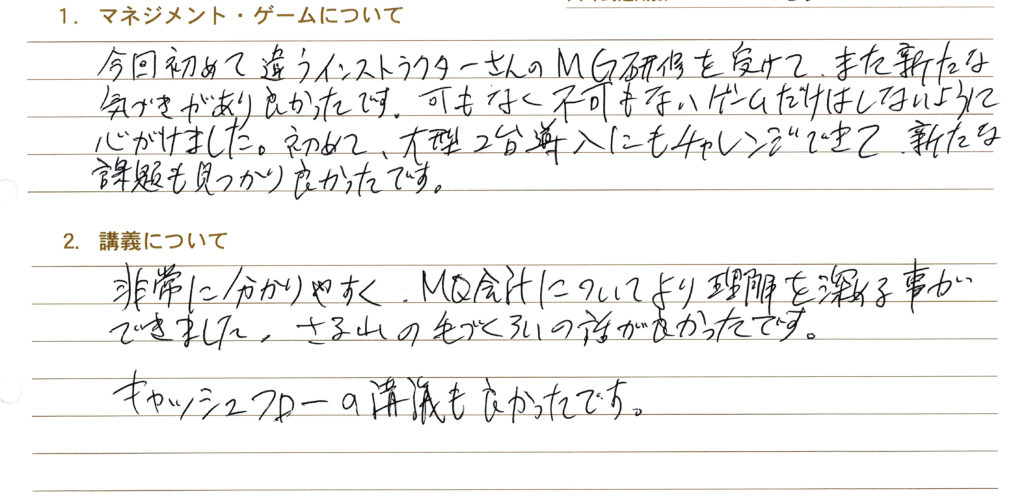 1. マネジメント・ゲームについて
今回初めて違うインストラクターさんのMG研修を受けて、また新たな
気づきがあり良かったです。可もなく不可もないゲームだけはしないように
心がけました。初めて、大型2台導入にもチャレンジできて、新たな
課題も見つかり良かったです。
2. 講義について
非常に分かりやすく、MQ会計についてより理解を深める事が
できました。さる山の毛づくろいの話が良かったです。
キャッシュフローの講議も良かったです。